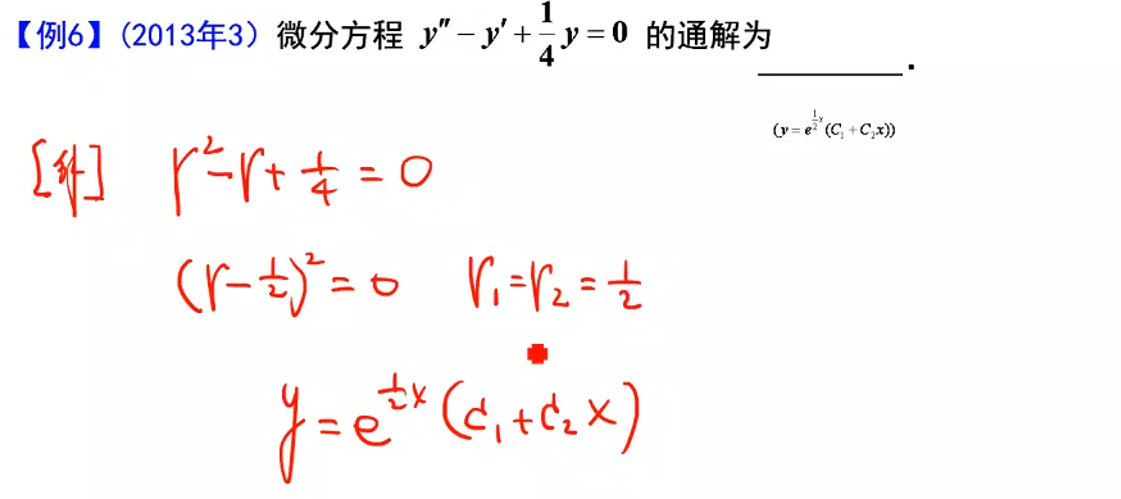 【例6】（2013年3）微分方程 y″ − y′ + 1/4 y = 0 的通解为________.
(y = e^{1/2 x}(C₁ + C₂x))
[解] r² − r + 1/4 = 0
(r − 1/2)² = 0 r₁ = r₂ = 1/2
y = e^{1/2 x}(C₁ + C₂x)